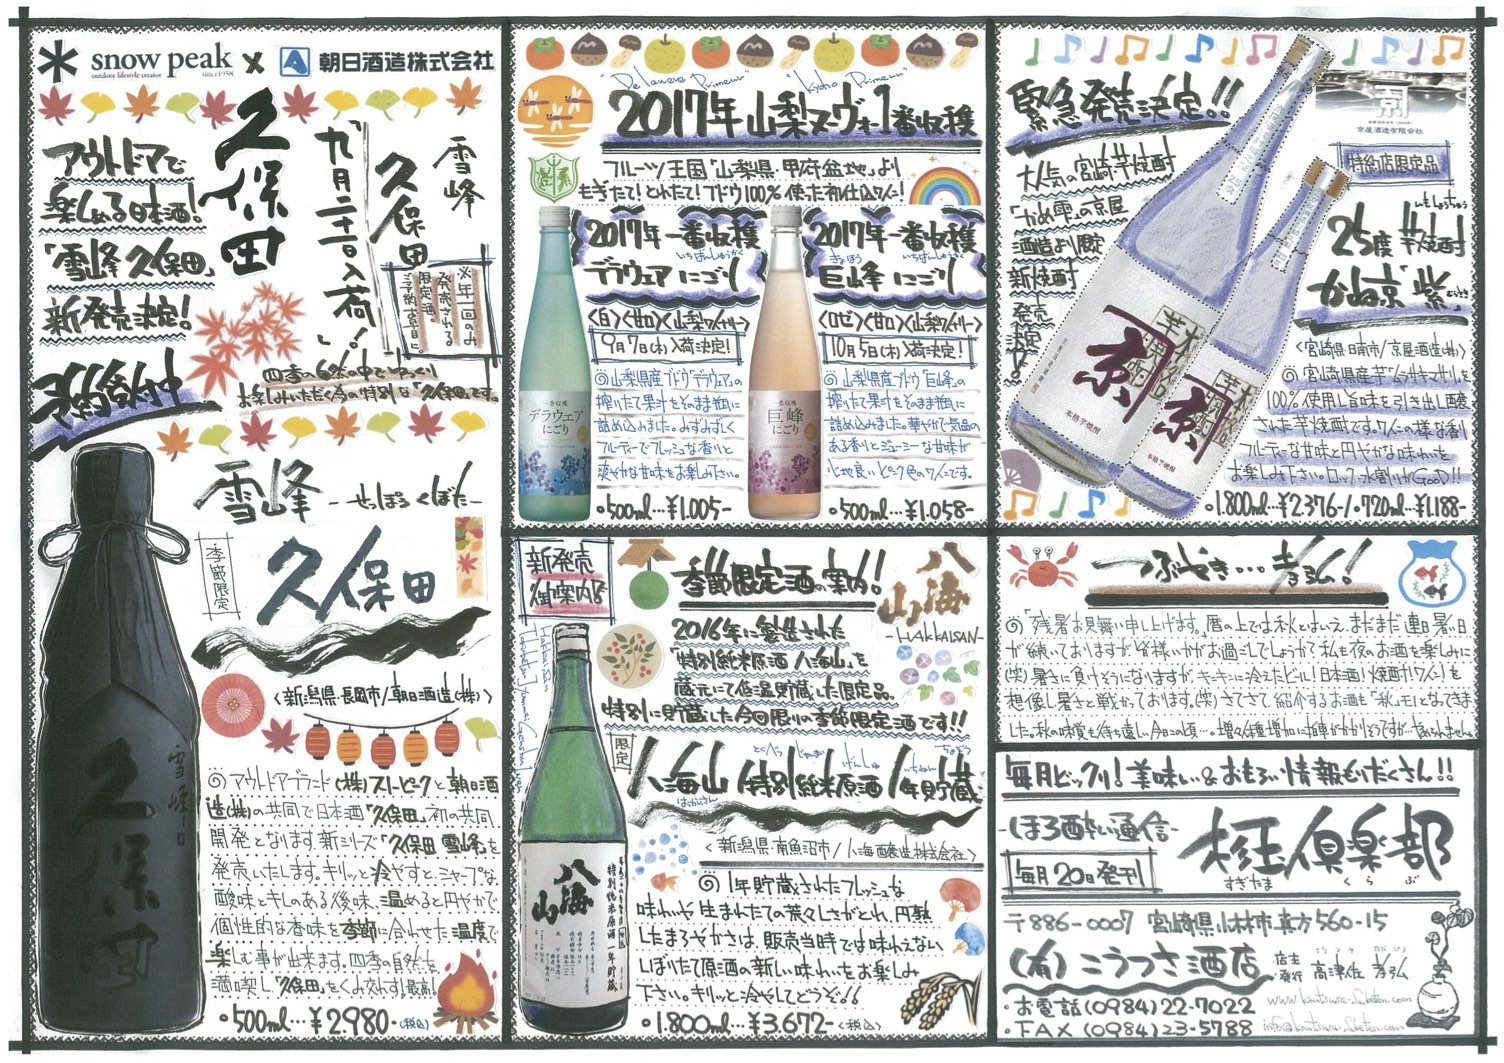 snow peak
outdoor lifestyle creator
since1958
×
朝日酒造株式会社
アウトドアで
楽しめる日本酒!
「雪峰 久保田」
新発売決定!
予約受付中
久保田
雪峰
久保田
「九月二十一日入荷!」
※年一回のみ
発売される
限定酒。
ご予約お早目に。
四季の自然の中でゆっくり
お楽しみいただく為の特別な「久保田」です。
雪峰
-せっぽう くぼた-
季節限定
久保田
<新潟県・長岡市/朝日酒造(株)>
◎アウトドアブランド(株)スノーピークと朝日酒
造(株)の共同で日本酒「久保田」初の共同
開発となります。新シリーズ「久保田 雪峰」を
発売いたします。キリッと冷やすと、シャープな
酸味とキレのある後味、温めると円やかで
個性的な香味を季節に合わせた温度で
楽しむ事が出来ます。四季の自然を
満喫し「久保田」をくみ交わす!最高!
・500ml…¥2.980-(税込)
久保田
雪峰
"Delaware Primeur"
"Kyoho Primeur"
2017年 山梨ヌーヴォー1番収穫
フルーツ王国「山梨県・甲府盆地」より
もぎたて!とれたて!ブドウ100%使った初仕込ワイン!
2017年 一番収穫
いちばんしゅうかく
デラウェア にごり
<白><甘口><山梨ワイナリー>
9月7日(木)入荷決定!
◎山梨県産ブドウ「デラウェア」の
搾りたて果汁をそのまま瓶に
詰め込みました。みずみずしく
フルーティーでフレッシュな香りと
爽やかな甘味をお楽しみ下さい。
・500ml…¥1.005-
一番収穫
デラウェア
にごり
2017年 一番収穫
きょほう いちばんしゅうかく
巨峰 にごり
<ロゼ><甘口><山梨ワイナリー>
10月5日(木)入荷決定!
◎山梨県産ブドウ「巨峰」の
搾りたて果汁をそのまま瓶に
詰め込みました。華やかで気品の
ある香りとジューシーな甘味が
心地良いピンク色のワインです。
・500ml…¥1.058-
一番収穫
巨峰
にごり
緊急発売決定!!
大人気の宮崎芋焼酎
「かめ雫」の京屋
酒造より限定
新焼酎
発売
決定!
京屋酒造有限会社
特約店限定品
いもしょうちゅう
25度 芋焼酎
かね京 紫
むらさき
<宮崎県・日南市/京屋酒造(株)>
◎宮崎県産芋「ムラサキマサリ」を
100%使用し旨味を引き出し醸
された芋焼酎です。ワインの様な香り
フルーティーな甘味と円やかな味わいを
お楽しみ下さい。ロック・水割りがGooD!!
・1.800ml…¥2.376-/・720ml…¥1.188-
本格芋焼酎
本格芋焼酎
新発売
御案内
季節限定酒の案内!
八海山
-HAKKAISAN-
2016年に製造された
「特別純米原酒 八海山」を
蔵元にて低温貯蔵した限定品。
特別に貯蔵した今回限りの季節限定酒です!!
限定
とくべつ じゅんまい げんしゅ いちねん ちょぞう
八海山 特別純米原酒 1年貯蔵
はっかいさん
<新潟県・南魚沼市/八海醸造株式会社>
◎1年貯蔵されたフレッシュな
味わいや生まれたての荒々しさがとれ、円熟
したまろやかさは、販売当時では味わえない
しぼりたて原酒の新しい味わいをお楽しみ
下さい。キリッと冷やしてどうぞ!!
・1.800ml…¥3.672-(税込)
八海山
特別純米原酒 一年貯蔵
つぶやき…孝弘!
◎「残暑お見舞い申し上げます。」暦の上では秋とはいえ、まだまだ連日暑い日
が続いておりますが皆様いかがお過ごしでしょうか?私も夜のお酒を楽しみに
(笑)暑さに負けそうになりますが、キンキンに冷えたビール!日本酒!焼酎!ワイン!を
想像し暑さと戦かっております。(笑)さてさて、紹介するお酒も「秋」モノとなってきま
した。秋の味覚も待ち遠しい今日この頃…。増々体重増加に拍車がかかりそうですが…やめられません
毎月ビックリ!美味い&おもろい情報もりだくさん!!
-ほろ酔い通信-
毎月20日発刊
杉玉倶楽部
すぎたま くらぶ
〒886-0007 宮崎県小林市真方560-15
(有)こうつさ酒店
店主
発行
こうつさ たかひろ
高津佐 孝弘
・お電話(0984)22-7022
・FAX(0984)23-5788